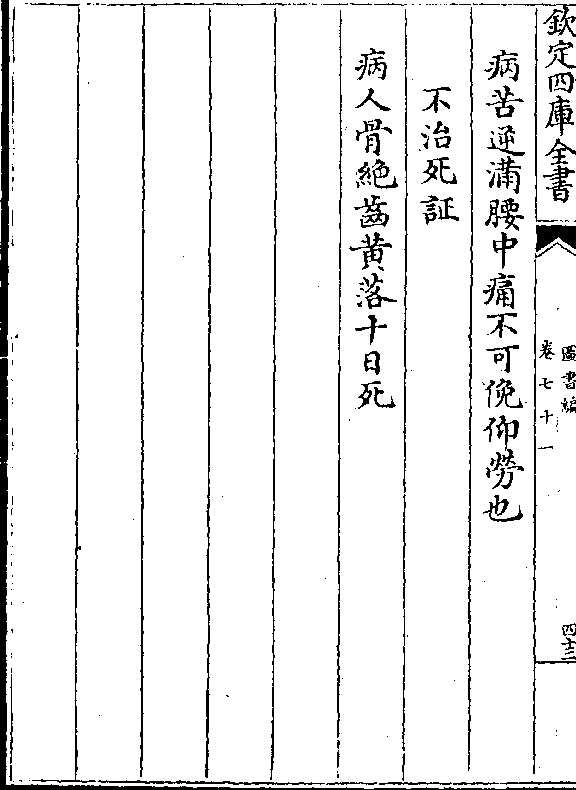 欽定四庫全書
圖書編
卷七十一
四十三
病苦逆滿腰中痛不可俛仰勞也
不治死証
病人骨絶齒黄落十日死